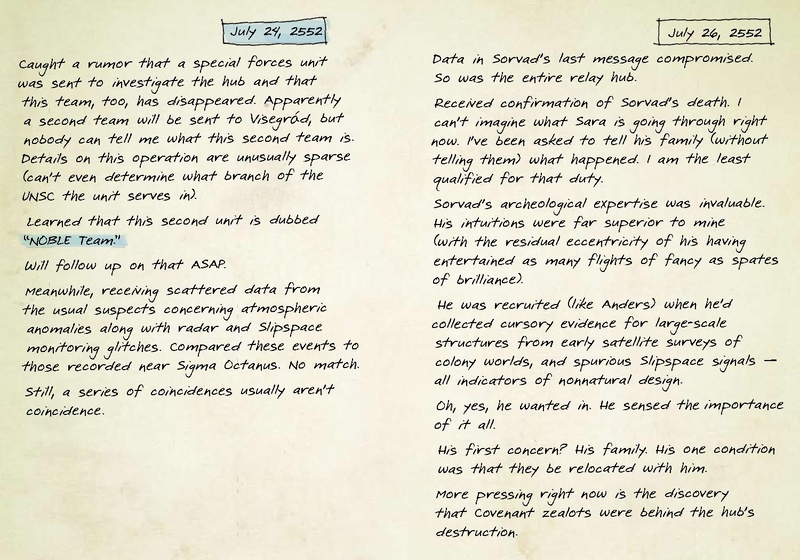 July 24, 2552
Caught a rumor that a special forces unit
was sent to investigate the hub and that
this team, too, has disappeared. Apparently
a second team will be sent to Visegrád, but
nobody can tell me what this second team is.
Details on this operation are unusually sparse
(can't even determine what branch of the
UNSC the unit serves in).
Learned that this second unit is dubbed
"NOBLE Team."
Will follow up on that ASAP.
Meanwhile, receiving scattered data from
the usual suspects concerning atmospheric
anomalies along with radar and Slipspace
monitoring glitches. Compared these events to
those recorded near Sigma Octanus. No match.
Still, a series of coincidences usually aren't
coincidence.
July 26, 2552
Data in Sorvad's last message compromised.
So was the entire relay hub.
Received confirmation of Sorvad's death. I
can't imagine what Sara is going through right
now. I've been asked to tell his family (without
telling them) what happened. I am the least
qualified for that duty.
Sorvad's archeological expertise was invaluable.
His intuitions were far superior to mine
(with the residual eccentricity of his having
entertained as many flights of fancy as spates
of brilliance).
He was recruited (like Anders) when he'd
collected cursory evidence for large-scale
structures from early satellite surveys of
colony worlds, and spurious Slipspace signals —
all indicators of nonnatural design.
Oh, yes, he wanted in. He sensed the importance
of it all.
His first concern? His family. His one condition
was that they be relocated with him.
More pressing right now is the discovery
that Covenant zealots were behind the hub's
destruction.